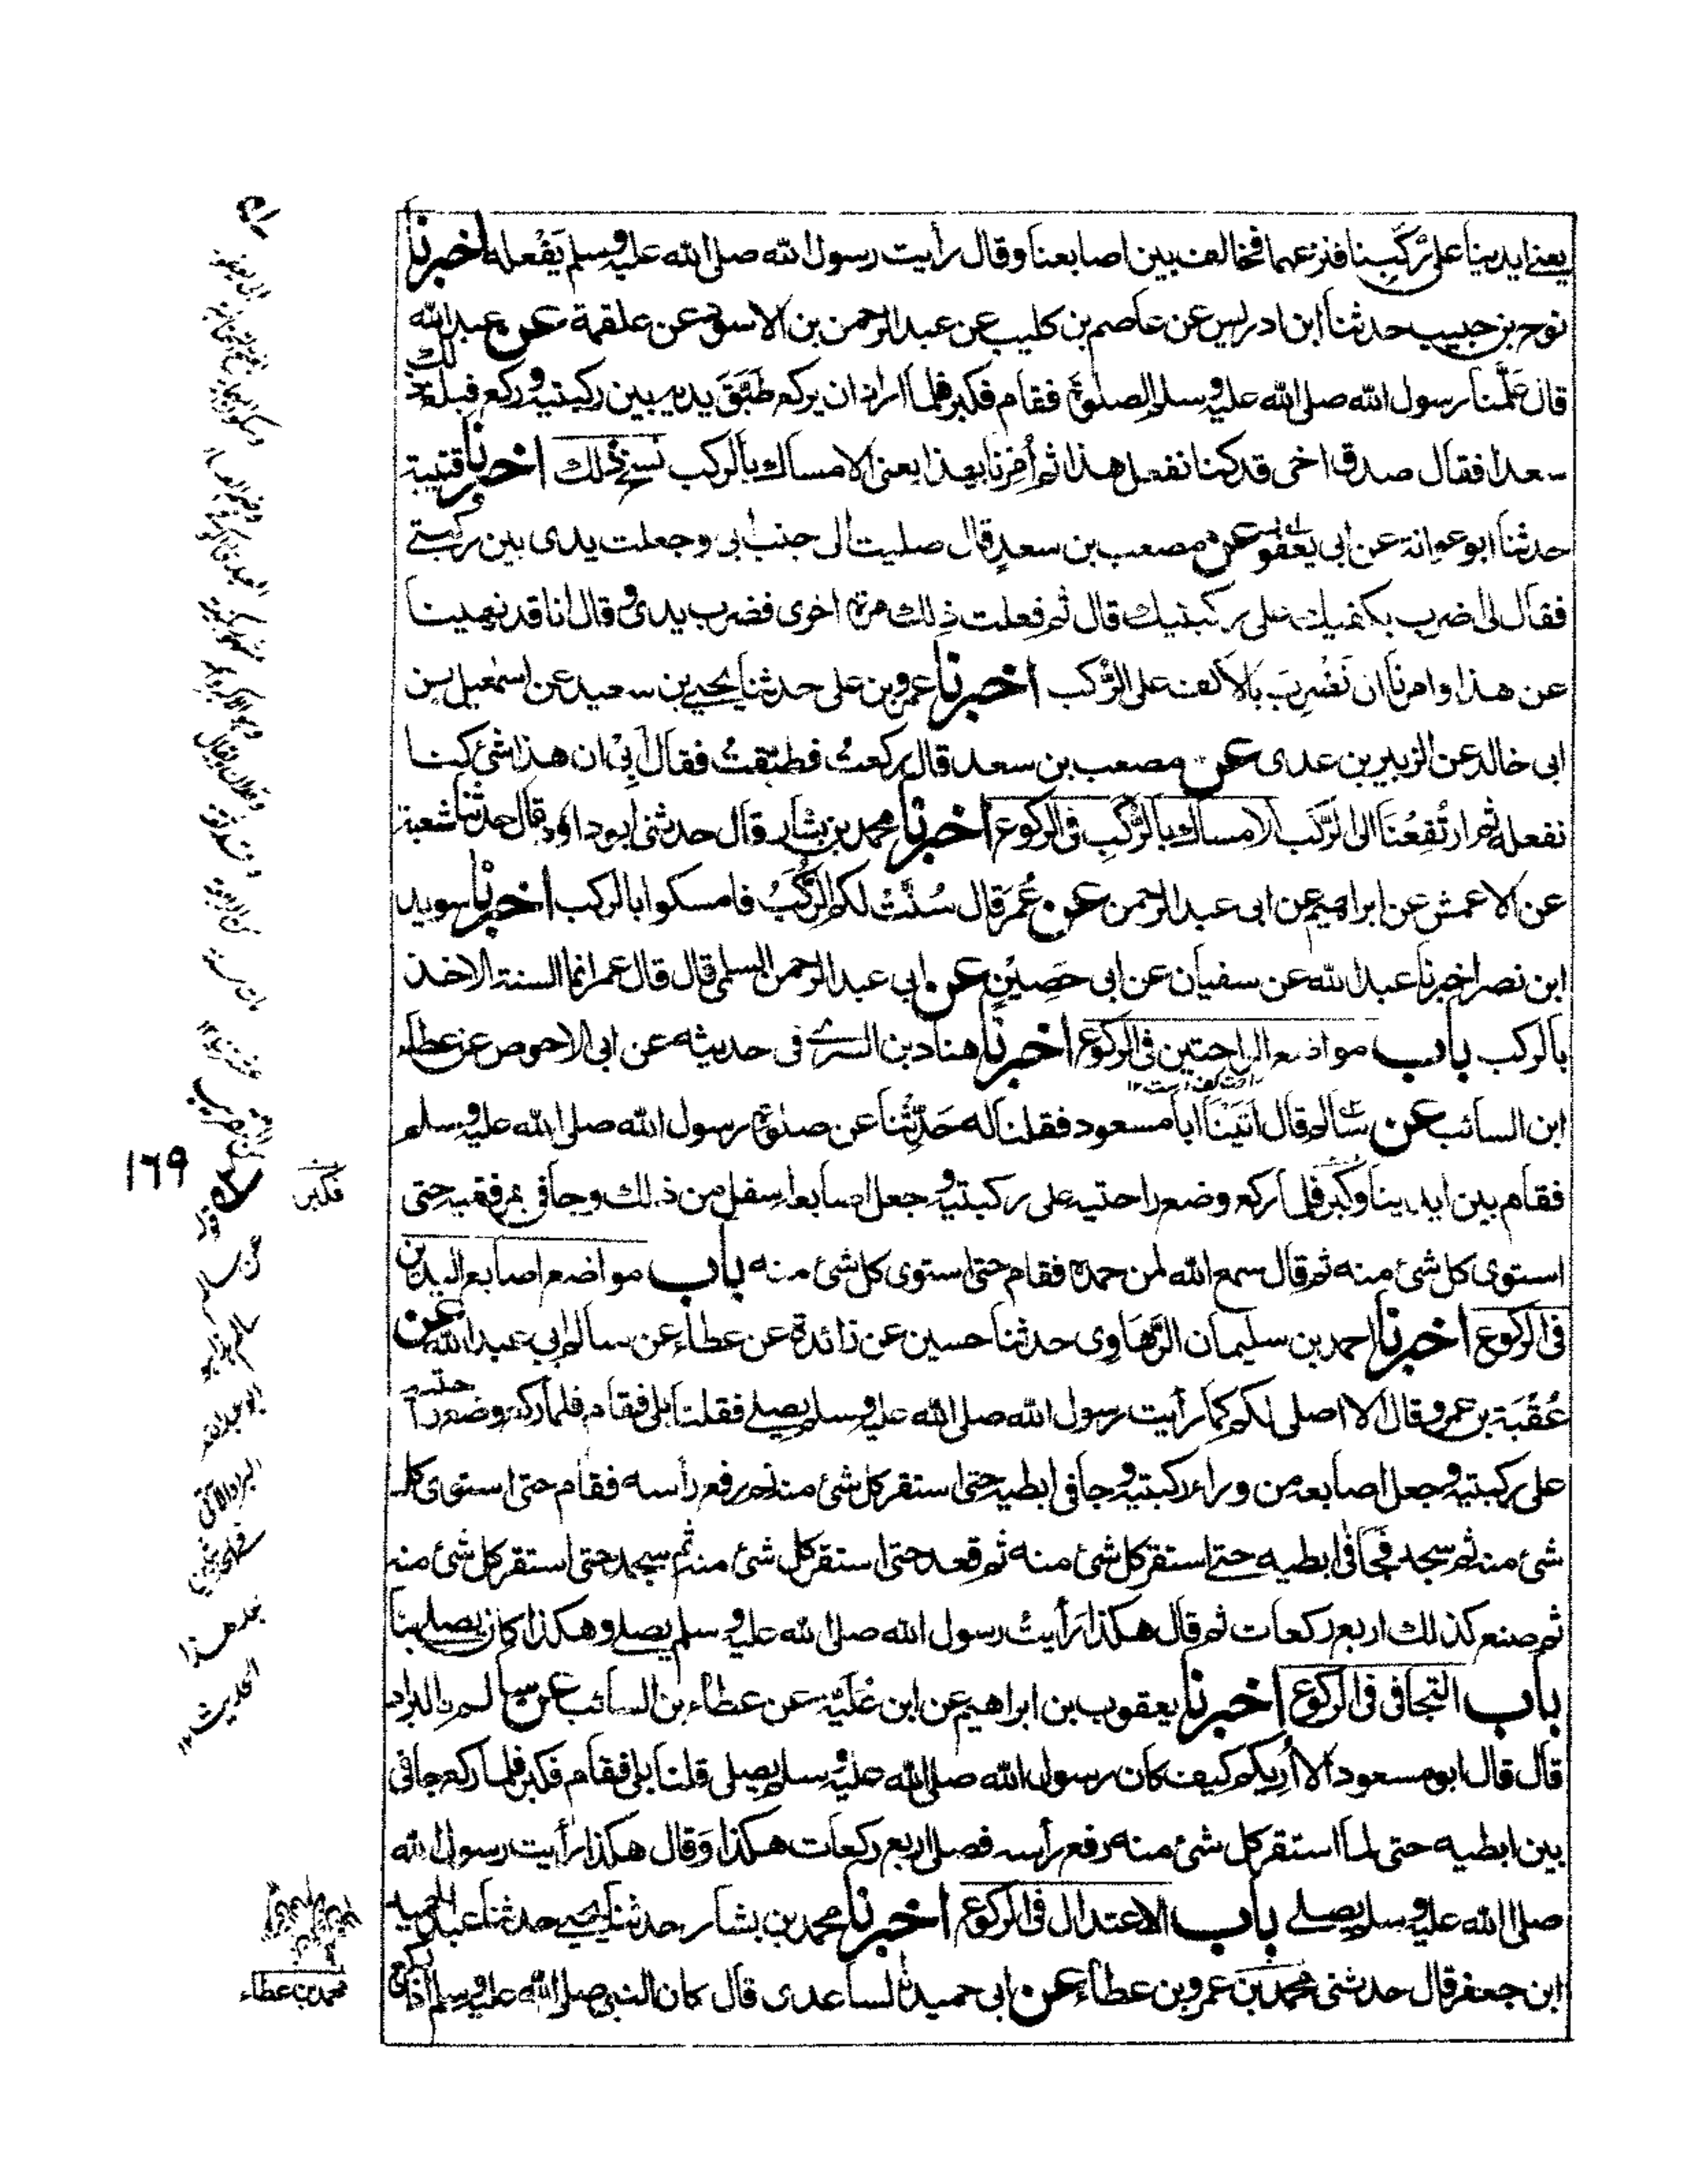 يعنى ايدينا على رُكَبِنا فنزعهما فخالف بين اصابعنا وقال رأيت رسول الله صلى الله عليه وسلم يَفْعله اخبرنا
نوح بن حبيب حدثنا ابن ادريس عن عاصم بن كليب عن عبد الرحمن بن الاسود عن علقمة عن عبد الله
قال عَلَّمنا رسول الله صلى الله عليه وسلم الصلوة فقام فكبر فلما اراد ان يركع طَبَّقَ يديه بين ركبتيه وركع فبلغ ذلك
سعدا فقال صدق اخى قد كنا نفعل هذا ثم اُمِرنا بهذا يعنى الامساك بالركب نسخ ذلك اخبرنا قتيبة
حدثنا ابو عوانة عن ابى يعفور عن مصعب بن سعدٍ قال صليت الى جنب ابى وجعلت يدى بين ركبتى
فقال لى اضرب بكفيك على ركبتيك قال ثم فعلت ذلك مرة اخرى فضرب يدى وقال انا قد نهينا
عن هذا وامرنا ان نَضْرِبَ بالاكف على الرُّكب اخبرنا عمرو بن على حدثنا يحيى بن سعيد عن اسمٰعيل بن
ابى خالد عن الزبير بن عدى عن مصعب بن سعد قال ركعتُ فطبّقتُ فقال اَبِىْ ان هذا شئ كنا
نفعله ثم ارتُفِعْنَا الى الرُّكَب الامساك بالرُّكَبِ فى الركوع اخبرنا محمد بن بشار قال حدثنى ابو داؤد قال حدثنا شعبة
عن الاعمش عن ابراهيم عن ابى عبد الرحمن عن عُمَرَ قال سُنَّتْ لكم الرُّكَبُ فامسكوا بالركب اخبرنا سويد
ابن نصر اخبرنا عبد الله عن سفيان عن ابى حَصِيْنٍ عن ابى عبد الرحمن السلمى قال قال عمر انما السنة الاخذ
بالركب باب مواضع الراحتين فى الركوع اخبرنا هناد بن السرى فى حديثه عن ابى الاحوص عن عطاء
ابن السائب عن سالم قال اَتَيْنَا ابا مسعود فقلنا له حَدِّثْنا عن صلوة رسول الله صلى الله عليه وسلم
فقام بين ايدينا وكَبَّر فلما ركع وضع راحتيه على ركبتيه وجعل اصابعه اسفل من ذلك وجافى بمرفقيه حتى
استوى كل شئ منه ثم قال سمع الله لمن حمده فقام حتى استوى كل شئ منه باب مواضع اصابع اليدين
فى الركوع اخبرنا احمد بن سليمان الرَّهَاوِى حدثنا حسين عن زائدة عن عطاء عن سالم ابى عبد الله عن
عُقْبَةَ بن عمرو قال الا اصلى لكم كما رأيت رسول الله صلى الله عليه وسلم يصلى فقلنا بلى فقام فلما ركع وضع راحتيه
على ركبتيه وجعل اصابعه من وراء ركبتيه وجافى ابطيه حتى استقر كل شئ منه ثم رفع رأسه فقام حتى استوى كل
شئ منه ثم سجد فجافى ابطيه حتى استقر كل شئ منه ثم قعد حتى استقر كل شئ منه ثم سجد حتى استقر كل شئ منه
ثم صنع كذلك اربع ركعات ثم قال هكذا رَأيتُ رسول الله صلى الله عليه وسلم يصلى وهكذا كان يصلى بنا
باب التجافى فى الركوع اخبرنا يعقوب بن ابراهيم عن ابن عُلَيَّة عن عطاء بن السائب عن سالم البراد
قال قال ابو مسعود الا اُرِيكم كيف كان رسول الله صلى الله عليه وسلم يصلى قلنا بلى فقام فكبر فلما ركع جافى
بين ابطيه حتى لما استقر كل شئ منه رفع رأسه فصلى اربع ركعات هكذا وَقال هكذا رأيت رسول الله
صلى الله عليه وسلم يصلى باب الاعتدال فى الركوع اخبرنا محمد بن بشار حدثنا يحيى حدثنا عبد الحميد
ابن جعفر قال حدثنى محمد بن عمرو بن عطاء عن ابى حميد الساعدى قال كان النبى صلى الله عليه وسلم اذا ركع
١٦٩
فكبر
محمد بن عطاء